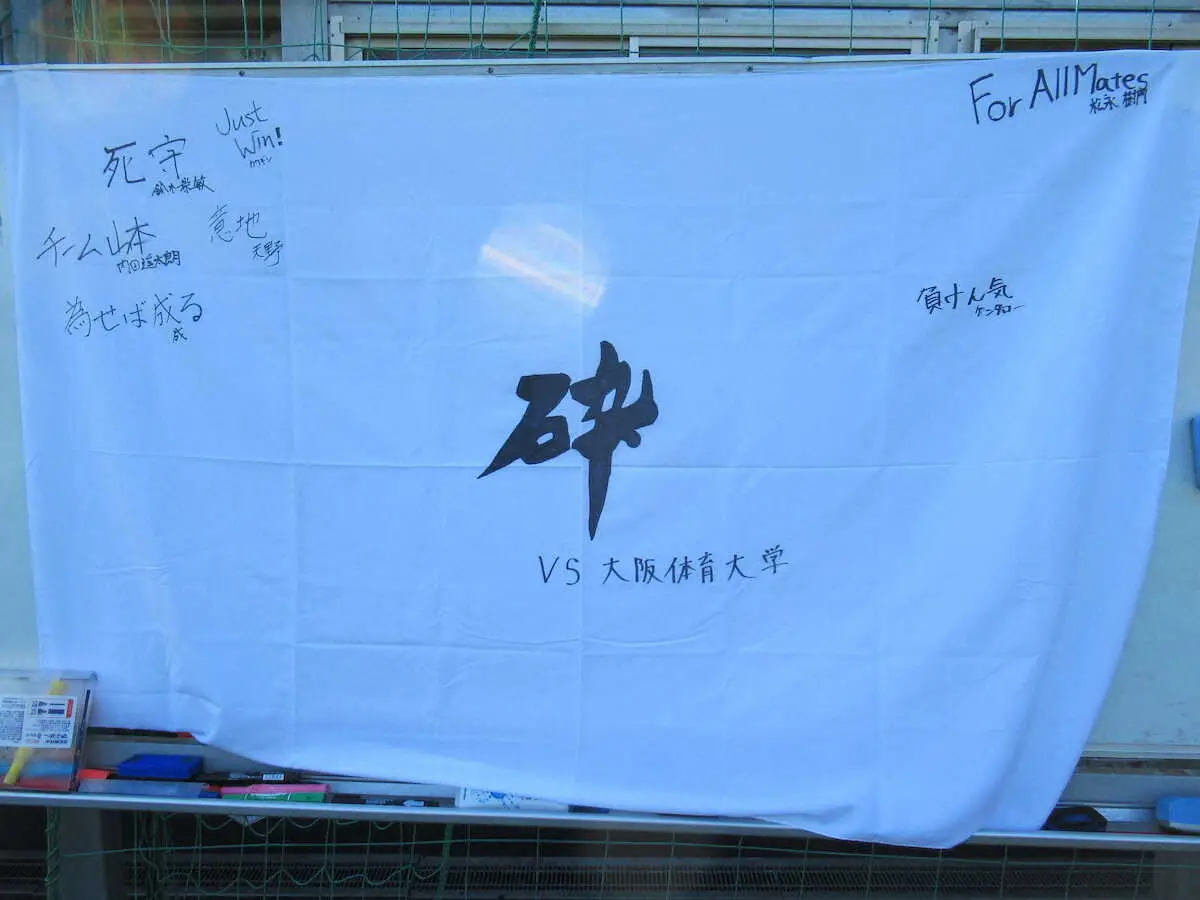 For All Mates
松永 樹門
Just
Win!
死守
鈴木崇敏
意地
天野
チーム山本
内田遼太朗
為せば成る
成
負けん気
ケンタロー
砕
VS 大阪体育大学